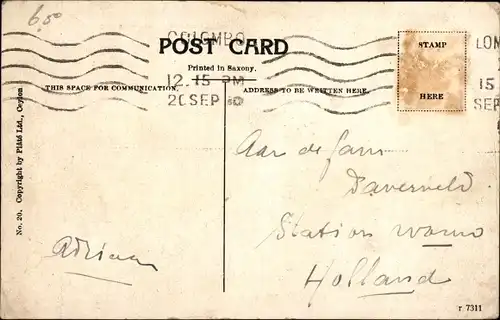 6,50
COLOMBO
POST CARD
Printed in Saxony.
12.15 PM
20 SEP
THIS SPACE FOR COMMUNICATION.
ADDRESS TO BE WRITTEN HERE.
STAMP
HERE
LOM
15
SEP
No. 20. Copyright by Plâté Ltd., Ceylon
Aan de fam
Station
Holland
Adriaan
r 7311